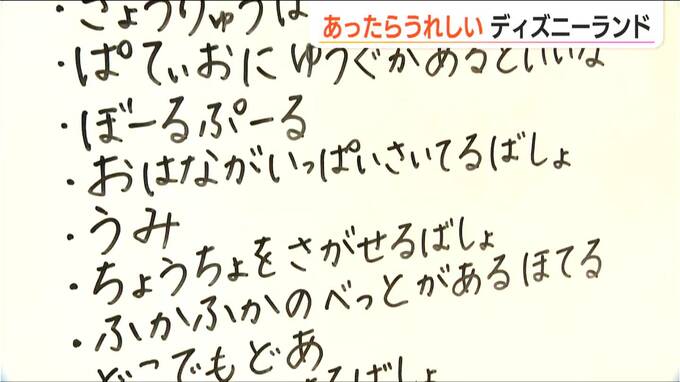 あったらうれしい ディズニーランド
・きょうりゅうは
・ぱてぃおに ゆうぐがあるといいな
・ぼーるぷーる
・おはながいっぱいさいてるばしょ
・うみ
・ちょうちょをさがせるばしょ
・ふかふかのべっとがあるほてる
どこでもどあ
るばしょ